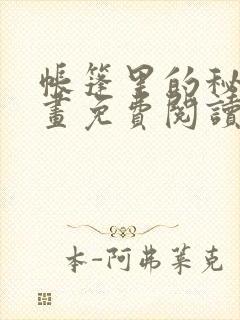 帳篷里的秘
畫免費閱讀
本-阿弗莱克